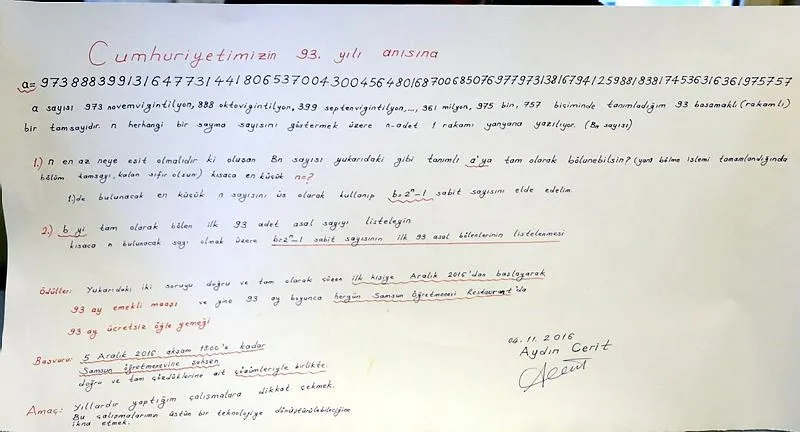 Cumhuriyetimizin 93. yılı anısına
a= 973888399131647731441806537004300456480168700685076977973138167941259881838174536316361975757
a sayısı 973 novemvigintilyon, 888 oktovigintilyon, 399 septenvigintilyon,..., 361 milyon, 975 bin, 757 biçiminde tanımladığım 93 basamaklı (rakamlı)
bir tamsayıdır. n herhangi bir sayma sayısını göstermek üzere n-adet 1 rakamı yanyana yazılıyor. (Bn sayısı)
1.) n en az neye eşit olmalıdır ki oluşan Bn sayısı yukarıdaki gibi tanımlı a'ya tam olarak bölünebilsin? (yani bölme işlemi tamamlandığında
bölüm tamsayı, kalan sıfır olsun) kısaca en küçük n=?
1.)de bulunacak en küçük n sayısını üs olarak kullanıp b=2ⁿ-1 sabit sayısını elde edelim.
2.) b yi tam olarak bölen ilk 93 adet asal sayıyı listeleyin
kısaca n bulunacak sayı olmak üzere b=2ⁿ-1 sabit sayısının ilk 93 asal bölenlerinin listelenmesi
Ödüller: Yukarıdaki iki soruyu doğru ve tam olarak çözen ilk kişiye Aralık 2016'dan başlayarak
93 ay emekli maaşı ve yine 93 ay boyunca hergün Samsun Öğretmenevi Restaurant'da
93 ay ücretsiz öğle yemeği
Başvuru: 5 Aralık 2016 akşam 1800'e kadar
Samsun öğretmenevine şahsen
doğru ve tam çözdüklerine ait çözümleriyle birlikte.
Amaç: Yıllardır yaptığım çalışmalara dikkat çekmek.
Bu çalışmalarımın üstün bir teknolojiye dönüştürülebileceğine
ikna etmek.
04.11.2016
Aydın Cerit